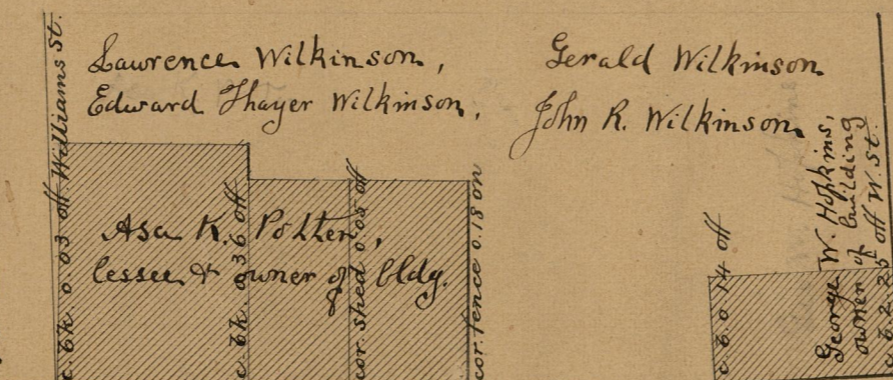 Lawrence Wilkinson,
Edward Thayer Wilkinson,
Gerald Wilkinson
John R. Wilkinson
Asa K. Potter,
lessee & owner of bldg.
c. bk. 0.03 off Williams St.
c. bk. 0.36 off
cor. shed 0.05 off
cor. fence 0.18 on
c. b. 0.14 off
George W. Hopkins,
owner of building
c. b. 2.25 off W. St.